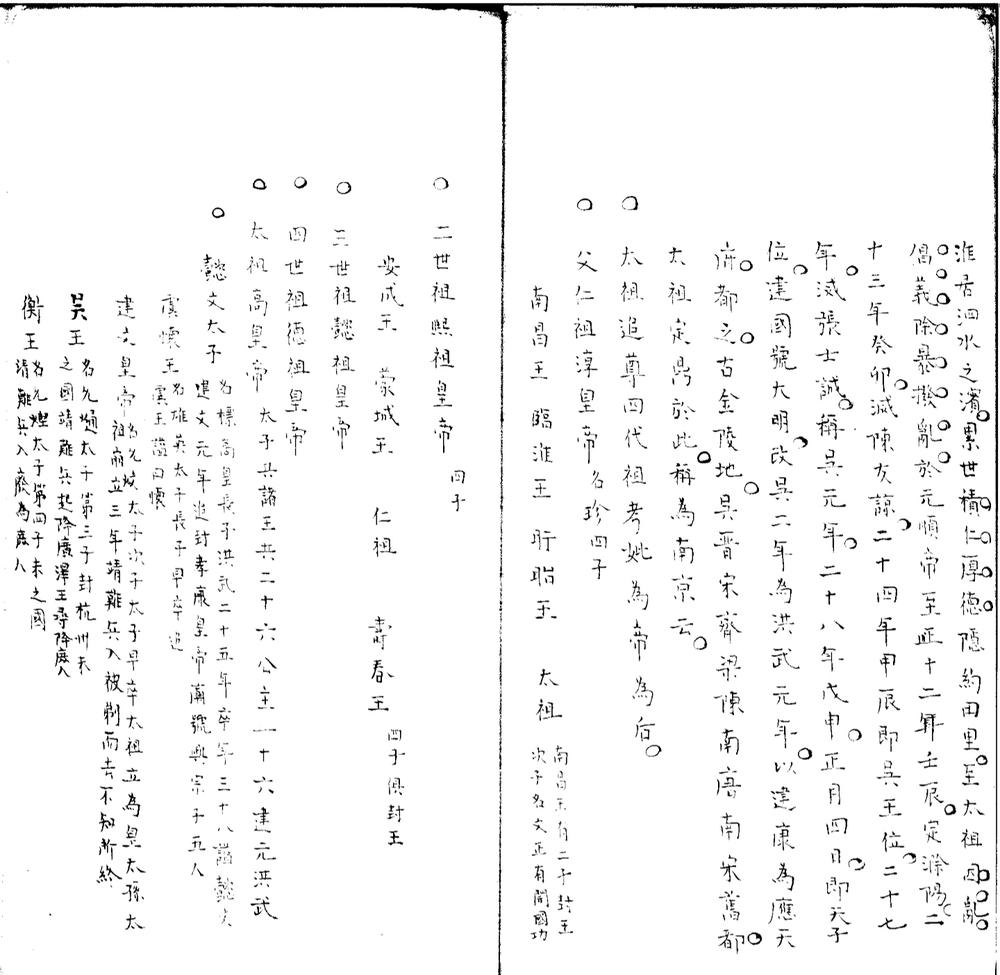 淮右泗水之濱累世積仁厚德隱約田里至太祖因亂
倡義除暴撥亂於元順帝至正十二年壬辰定滁陽二
十三年癸卯滅陳友諒二十四年甲辰即吳王位二十七
年滅張士誠稱吳元年二十八年戊申正月四日即天子
位建國號大明改吳二年為洪武元年以建康為應天
府都之古金陵地吳晋宋齊梁陳南唐南宋舊都
太祖定鼎於此稱為南京云
太祖追尊四代祖考妣為帝為后
父仁祖淳皇帝 名珍四子
南昌王 臨淮王 盱眙王 太祖 南昌王有二子封王
次子名文正有開國功
二世祖熙祖皇帝 四子
安成王 蒙城王 仁祖 壽春王 四子俱封王
三世祖懿祖皇帝
四世祖德祖皇帝
太祖高皇帝 太子共諸王共二十六公主一十六建元洪武
懿文太子 名標高皇長子洪武二十五年卒年三十八諡懿文
建文元年追封孝康皇帝廟號興宗子五人
虞懷王 名雄英太子長子早卒追
虞王諡曰懷
建文皇帝 名允炆太子次子太子早卒太祖立為皇太孫太
祖崩立三年靖難兵入被剃而去不知所終
吳王 名允熥太子第三子封杭州未
之國靖難兵起降廣澤王尋降庶人
衡王 名允熞太子第四子未之國
靖難兵入廢為庶人